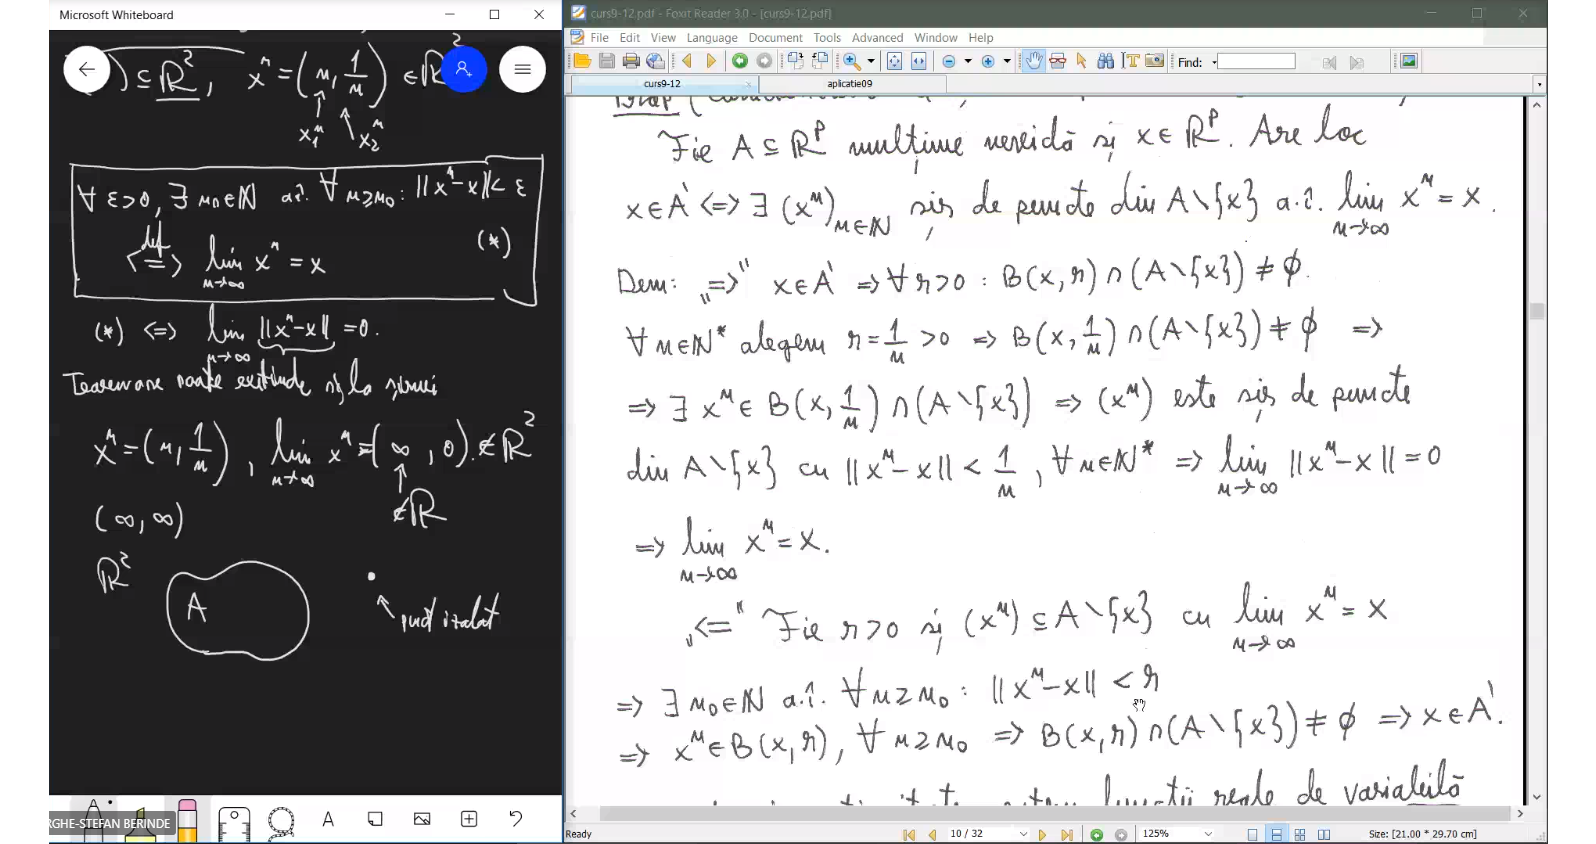 Microsoft Whiteboard
) ⊆ ℝ², xⁿ = (n, 1/n) ∈ ℝ²
x₁ⁿ x₂ⁿ
∀ ε>0, ∃ n₀∈ℕ a.î. ∀ n≥n₀: ||xⁿ-x|| < ε
<=def=> lim n→∞ xⁿ = x (*)
(*) <=> lim n→∞ ||xⁿ-x|| = 0.
xⁿ = (n, 1/n), lim n→∞ xⁿ = (∞, 0) ∉ ℝ²
∉ ℝ
(∞, ∞)
ℝ²
A
punct izolat
RGHE-STEFAN BERINDE
curs9-12.pdf - Foxit Reader 3.0 - [curs9-12.pdf]
File Edit View Language Document Tools Advanced Window Help
Find:
curs9-12 aplicatie09
Fie A ⊆ ℝᵖ mulțime nevidă și x ∈ ℝᵖ. Are loc
x∈A' <=> ∃ (xⁿ)n∈ℕ șir de puncte din A\{x} a.î. lim n→∞ xⁿ = x.
Dem: „=>" x∈A' => ∀ r>0 : B(x, r) ∩ (A\{x}) ≠ ∅.
∀ n∈ℕ* alegem r = 1/n > 0 => B(x, 1/n) ∩ (A\{x}) ≠ ∅ =>
=> ∃ xⁿ ∈ B(x, 1/n) ∩ (A\{x}) => (xⁿ) este șir de puncte
din A\{x} cu ||xⁿ-x|| < 1/n, ∀ n∈ℕ* => lim n→∞ ||xⁿ-x|| = 0
=> lim n→∞ xⁿ = x.
„<=" Fie r>0 și (xⁿ) ⊆ A\{x} cu lim n→∞ xⁿ = x
=> ∃ n₀∈ℕ a.î. ∀ n≥n₀ : ||xⁿ-x|| < r
=> xⁿ ∈ B(x, r), ∀ n≥n₀ => B(x, r) ∩ (A\{x}) ≠ ∅ => x∈A'.
reale de variabilă
Ready 10 / 32 125% Size: [21.00 * 29.70 cm]